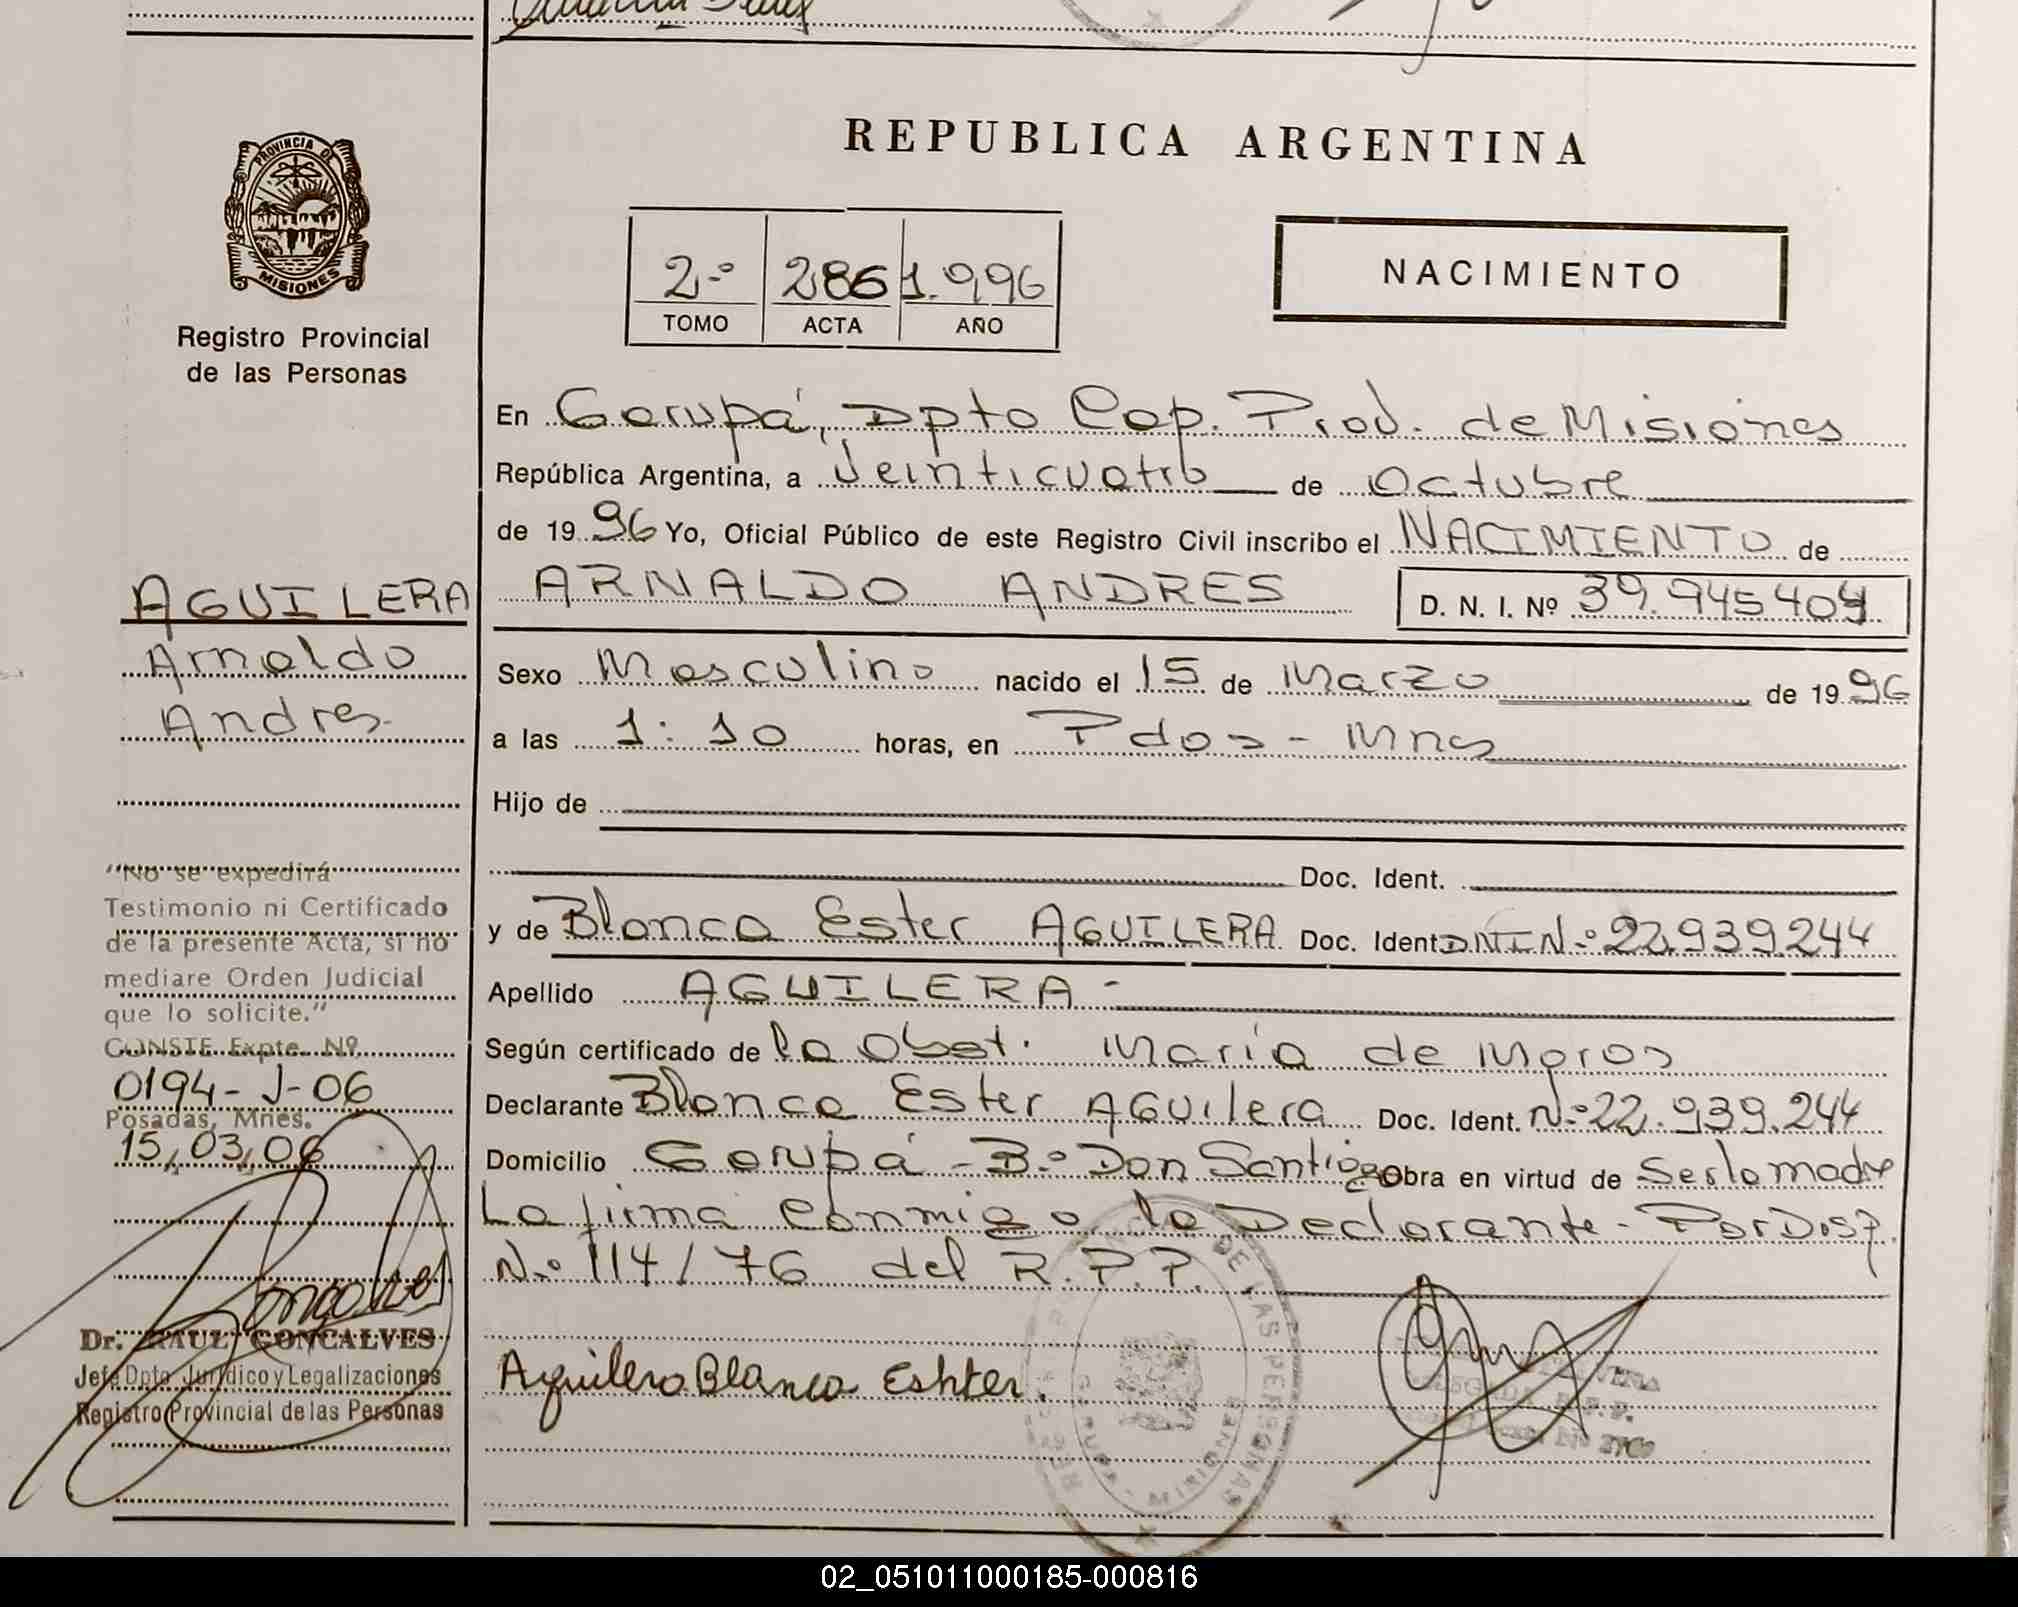 REPUBLICA ARGENTINA
PROVINCIA DE
MISIONES
Registro Provincial
de las Personas
2º 286 1.996
TOMO ACTA AÑO
NACIMIENTO
En Garupá, Dpto Cap. Prov. de Misiones
República Argentina, a Veinticuatro de Octubre
de 1996 Yo, Oficial Público de este Registro Civil inscribo el NACIMIENTO de
ARNALDO ANDRES D. N. I. Nº 39.945404
Sexo Masculino nacido el 15 de Marzo de 1996
a las 1:10 horas, en Pdas - Mnes
Hijo de
Doc. Ident.
y de Blanca Ester AGUILERA Doc. Ident. DNI Nº 22.939.244
Apellido AGUILERA -
Según certificado de la Obst. Maria de Moros
Declarante Blanca Ester AGUilera Doc. Ident. Nº 22.939.244
Domicilio Garupá - Bº Don Santiago Obra en virtud de Ser la madre
La firma Conmigo la Declarante - Por Disp.
Nº 114/76 del R.P.P.
Aguilera Blanca Eshter.
AGUILERA
Arnaldo
Andres
"No se expedirá
Testimonio ni Certificado
de la presente Acta, si no
mediare Orden Judicial
que lo solicite."
CONSTE Expte. Nº
0194-J-06
Posadas, Mnes.
15,03,06
Goncalves
Dr. RAUL GONCALVES
Jefe Dpto Jurídico y Legalizaciones
Registro Provincial de las Personas
DE LAS PERSONAS
GARUPA - MISIONES
02_051011000185-000816